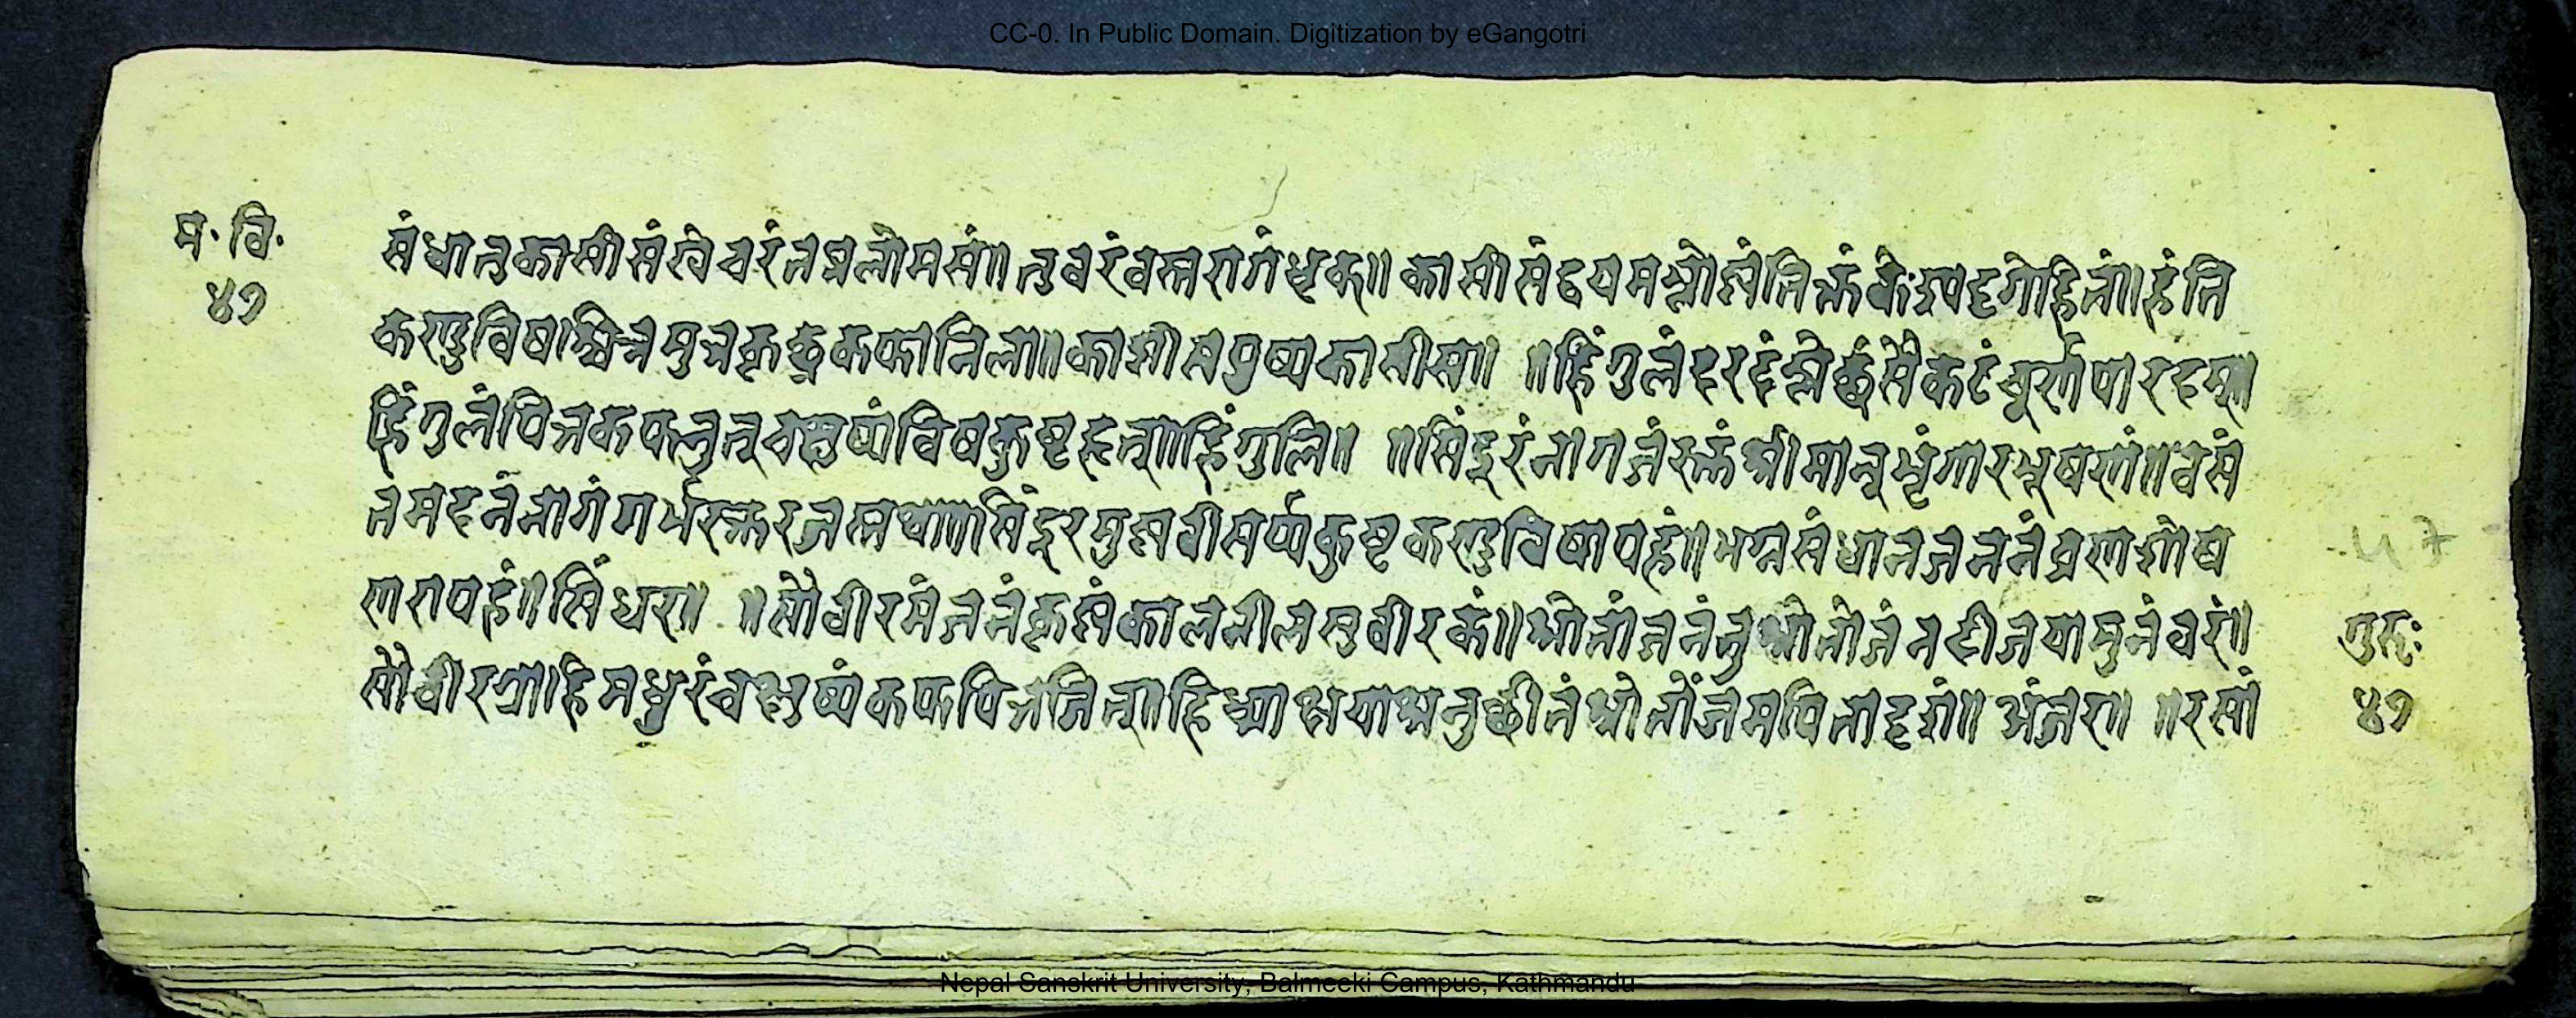 CC-0. In Public Domain. Digitization by eGangotri
म· वि·
४७
संधातुकासीसंखेचरंतप्तलोमसं॥ तुवरंवस्त्ररागंधृक्॥ कासीसंद्वयमम्लोष्णंतिक्तंकेश्यदृगेहितं॥हंति
कण्डुविषश्वित्रमुत्रकृछ्रकफानिला॥काशीसपुष्पकासीस॥ ॥हिंगुलंदरदंम्लेछंसैकटंचूर्णपारदम्॥
हिंगुलंपित्तकफनुत्चक्षुष्यंविषकुष्टहृत्॥हिंगुलि॥ ॥सिंदूरंनागजंरक्तंश्रीमान्शृंगारभूषणं॥वसं
तमदनंनागंगर्भरक्तरजस्तथा॥सिंदूरमुष्णवीसर्प्पकुष्टकण्डुविषापहं॥भग्नसंधानजननंव्रणशोध
णरापहं॥सिंधर॥ ॥सौवीरमंजनंकृष्णंकालनीलसुवीरकं॥श्रोतांजनंतुश्रोतोजंनदीजयामुनंवरं॥
सौवीरग्राहिमधुरंचक्षुष्यंकफपित्तजित्॥हिध्माक्षयास्रनुछीतंश्रोतोंजमपितादृशं॥ अंजरा॥ ॥रसां
गुरुः
४७
47
Nepal Sanskrit University, Balmeeki Campus, Kathmandu